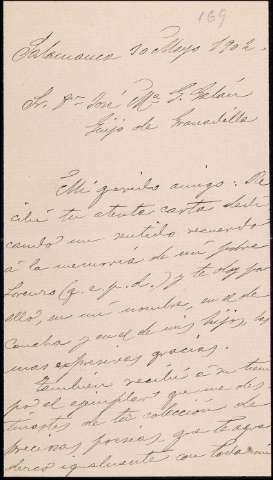 169
Salamanca 10 Mayo 1902.
Sr. Dn José Mª G. Galán
Guijo de Granadilla
Mi querido amigo: Re
cibí tu atenta carta dedi
cando un sentido recuerdo
á la memoria de mi pobre
(q. e. p. d.) y te doy por
ello, en mi nombre, en el de
Concha y en el de mis hijos, las
mas expresivas gracias.
También recibí á su tiem
po el ejemplar que me des
tinastes de tu colección de
preciosas poesías, q. te agra
dezco igualmente con toda mi